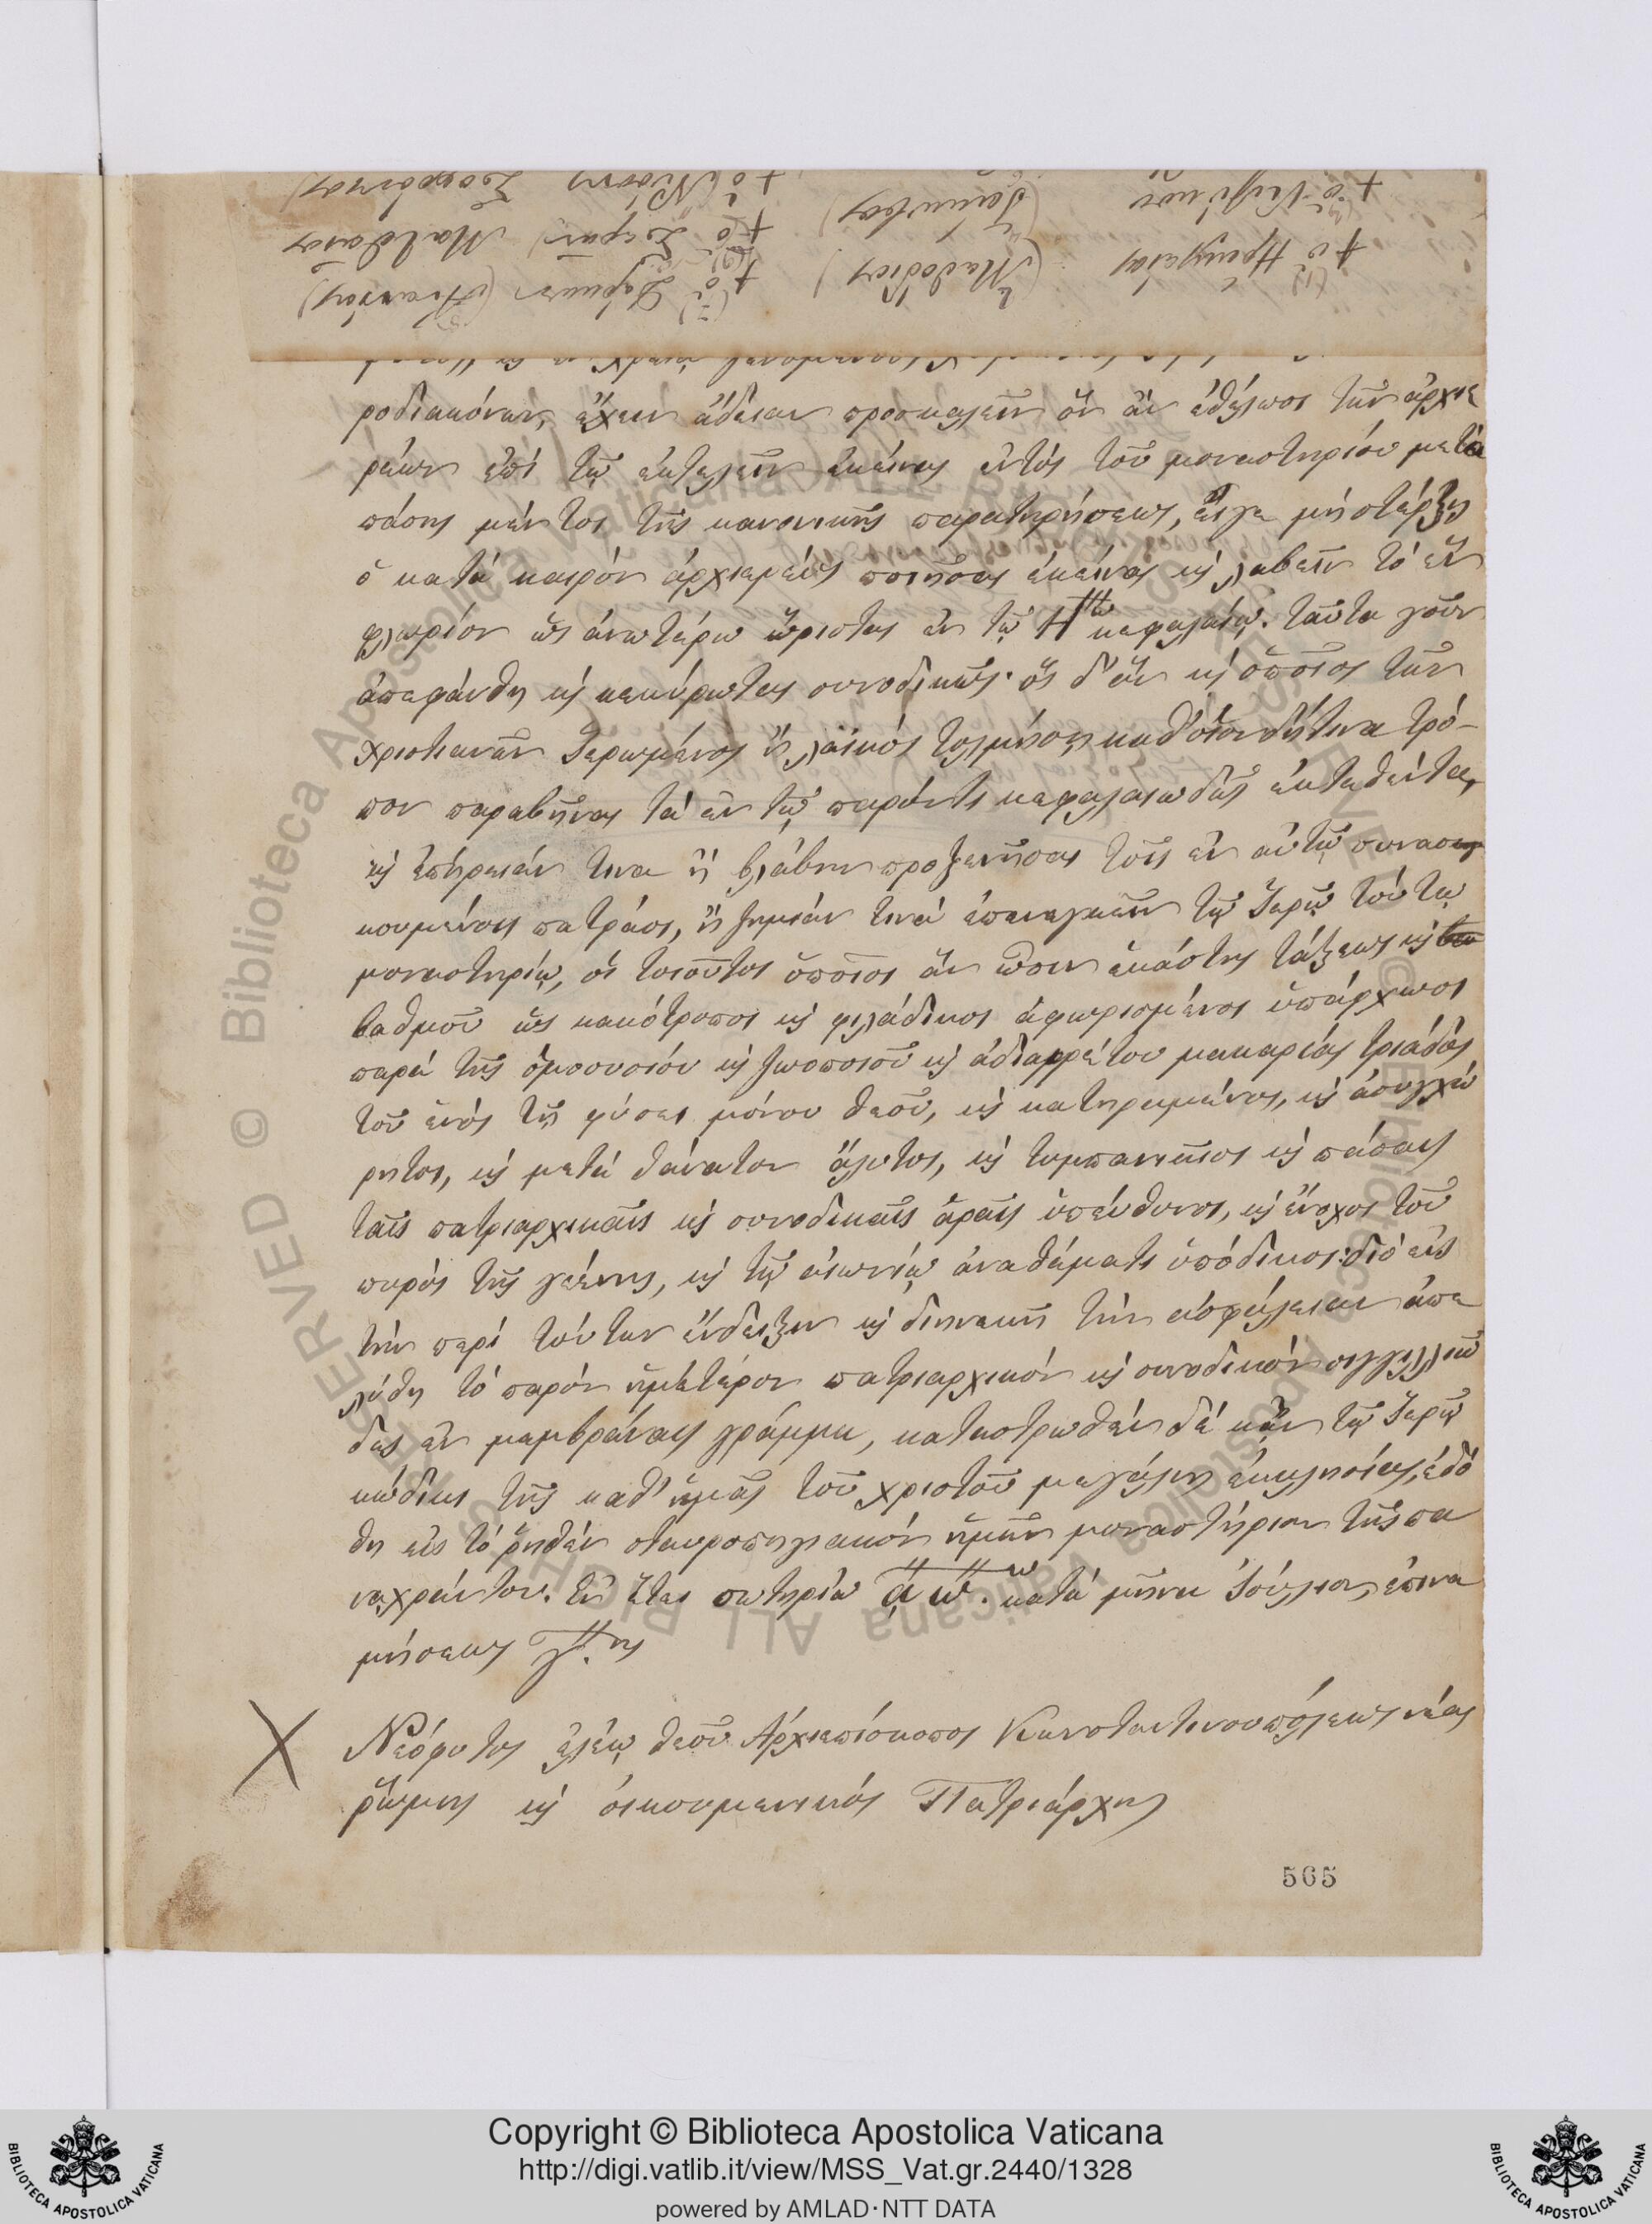 ροδιακόνων, ἔχειν ἄδειαν προσκαλεῖν ὃν ἂν ἐθέλωσι τῶν ἀρχιε
ρέων ἐπὶ τῷ ἐκτελεῖν ἐκείνας ἐντὸς τοῦ μοναστηρίου μετὰ
πάσης μέν τοι τῆς κανονικῆς παρατηρήσεως, εἴγε μὴ στέρξῃ
ὁ κατὰ καιρὸν ἀρχιερεὺς ποιῆσαι ἐκείνας καὶ λαβεῖν τὸ ἓν
φλωρίον ὡς ἀνωτέρω ὥρισται ἐν τῷ Η΄ῳ κεφαλαίῳ. ταῦτα γοῦν
ἀπεφάνθη καὶ κεκύρωται συνοδικῶς· ὃς δ' ἂν καὶ ὁποῖος τῶν
χριστιανῶν ἱερωμένος ἢ λαϊκὸς τολμήσῃ καθ' ὁτονδήτινα τρό-
πον παραβῆναι τὰ ἐν τῷ παρόντι κεφαλαιωδῶς ἐκτεθέντα,
καὶ ἐπήρειάν τινα ἢ βλάβην προξενῆσαι τοῖς ἐν αὐτῷ συνασ
κουμένοις πατράσι, ἢ ζημίαν τινὰ ἐπενεγκεῖν τῷ ἱερῷ τούτῳ
μοναστηρίῳ, οἱ τοιοῦτοι ὁποῖοι ἂν ὦσιν ἑκάστης τάξεως καὶ
βαθμοῦ ὡς κακότροποι καὶ φιλάδικοι ἀφωρισμένοι ὑπάρχωσι
παρὰ τῆς ὁμοουσίου καὶ ζωοποιοῦ καὶ ἀδιαιρέτου μακαρίας τριάδος
τοῦ ἑνὸς τῇ φύσει μόνου θεοῦ, καὶ κατηραμένοι, καὶ ἀσυγχώ
ρητοι, καὶ μετὰ θάνατον ἄλυτοι, καὶ τυμπανιαῖοι καὶ πάσαις
ταῖς πατριαρχικαῖς καὶ συνοδικαῖς ἀραῖς ὑπεύθυνοι, καὶ ἔνοχοι τοῦ
πυρὸς τῆς γεέννης, καὶ τῷ αἰωνίῳ ἀναθέματι ὑπόδικοι· διὸ εἰς
τὴν περὶ τούτων ἔνδειξιν καὶ διηνεκῆ τὴν ἀσφάλειαν ἀπε
λύθη τὸ παρὸν ἡμέτερον πατριαρχικὸν καὶ συνοδικὸν σιγγιλλιῶ
δες ἐν μεμβράναις γράμμα, καταστρωθὲν δὲ κἂν τῷ ἱερῷ
κώδικι τῆς καθ' ἡμᾶς τοῦ χριστοῦ μεγάλης ἐκκλησίας, ἐδό
θη εἰς τὸ ῥηθὲν σταυροπηγιακὸν ἡμῶν μοναστήριον τῆς πα
ναχράντου. Ἐν ἔτει σωτηρίῳ ͵αω΄ῳ. κατὰ μῆνα Ἰούλιον, ἐπινε
μήσεως γ΄.ης
Νεόφυτος ἐλέῳ θεοῦ Ἀρχιεπίσκοπος Κωνσταντινουπόλεως νέας
ῥώμης καὶ οἰκουμενικὸς Πατριάρχης
565
Copyright © Biblioteca Apostolica Vaticana
http://digi.vatlib.it/view/MSS_Vat.gr.2440/1328
powered by AMLAD·NTT DATA
BIBLIOTECA APOSTOLICA VATICANA
BIBLIOTECA APOSTOLICA VATICANA